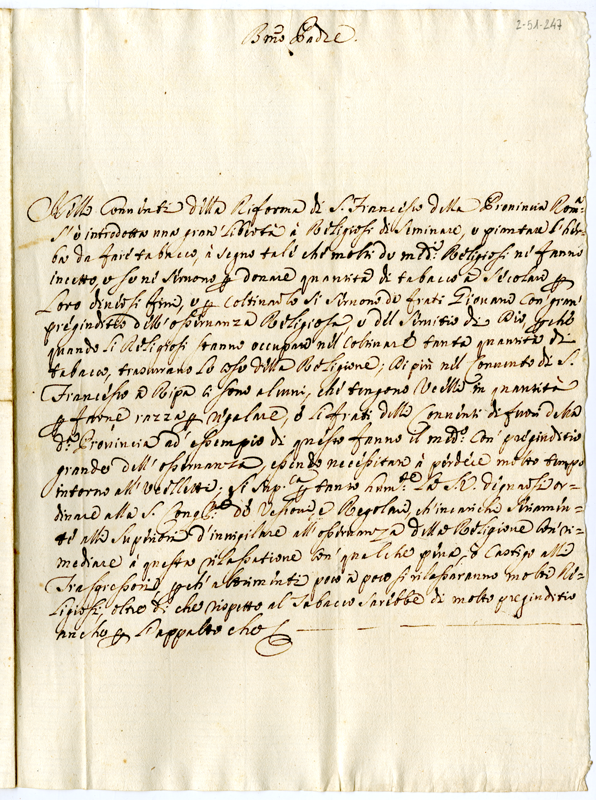 2-51-247
Bmo Padre.
Nelli Conventi della Riforma di S. Francesco della Provincia Roma=
s'è introdotta una gran libertà à Religiosi di seminare, o piantare l'her=
ba da fare tabacco, à segno tale che molti de med.i Religiosi ne fanno
incetto, o se ne servono p donare quantità di tabacco a Secolari p
Loro diversi fini, o p coltivarlo si servono de frati Giovani con gran
pregiuditio dell'osservanza Religiosa, e del Servitio di Dio, pche
quando li Religiosi stanno occupati nel coltivare tanta quantità di
tabacco, trascurano le cose della Religione; Di più nel Convento di S.
Francesco a Ripa ci sono alcuni, che tengono Ucelli in quantità
p farne razza p regalare, e li frati delli Conventi di fuori della
d.a Provincia ad esempio di questo fanno il med.o con pregiuditio
grande dell'osservanza, essendo necessitati à perdere molto tempo
intorno all'Uccelletti; si sup.ca p tanto hum.te la S.V. dignarsi or=
dinare alla S. Cong.ne de Vescovi, e Regolari, ch'incarichi seriamen=
te alli Superiori d'invigilare all'osservanza della Religione con ri=
mediare à questa rilassatione con qualche pena, e castigo alli
Trasgressori pche altrimenti poco a poco si rilassaranno molti Re=
ligiosi, oltre di che rispetto al Tabacco sarebbe di molto pregiuditio
anche p l'appalto che